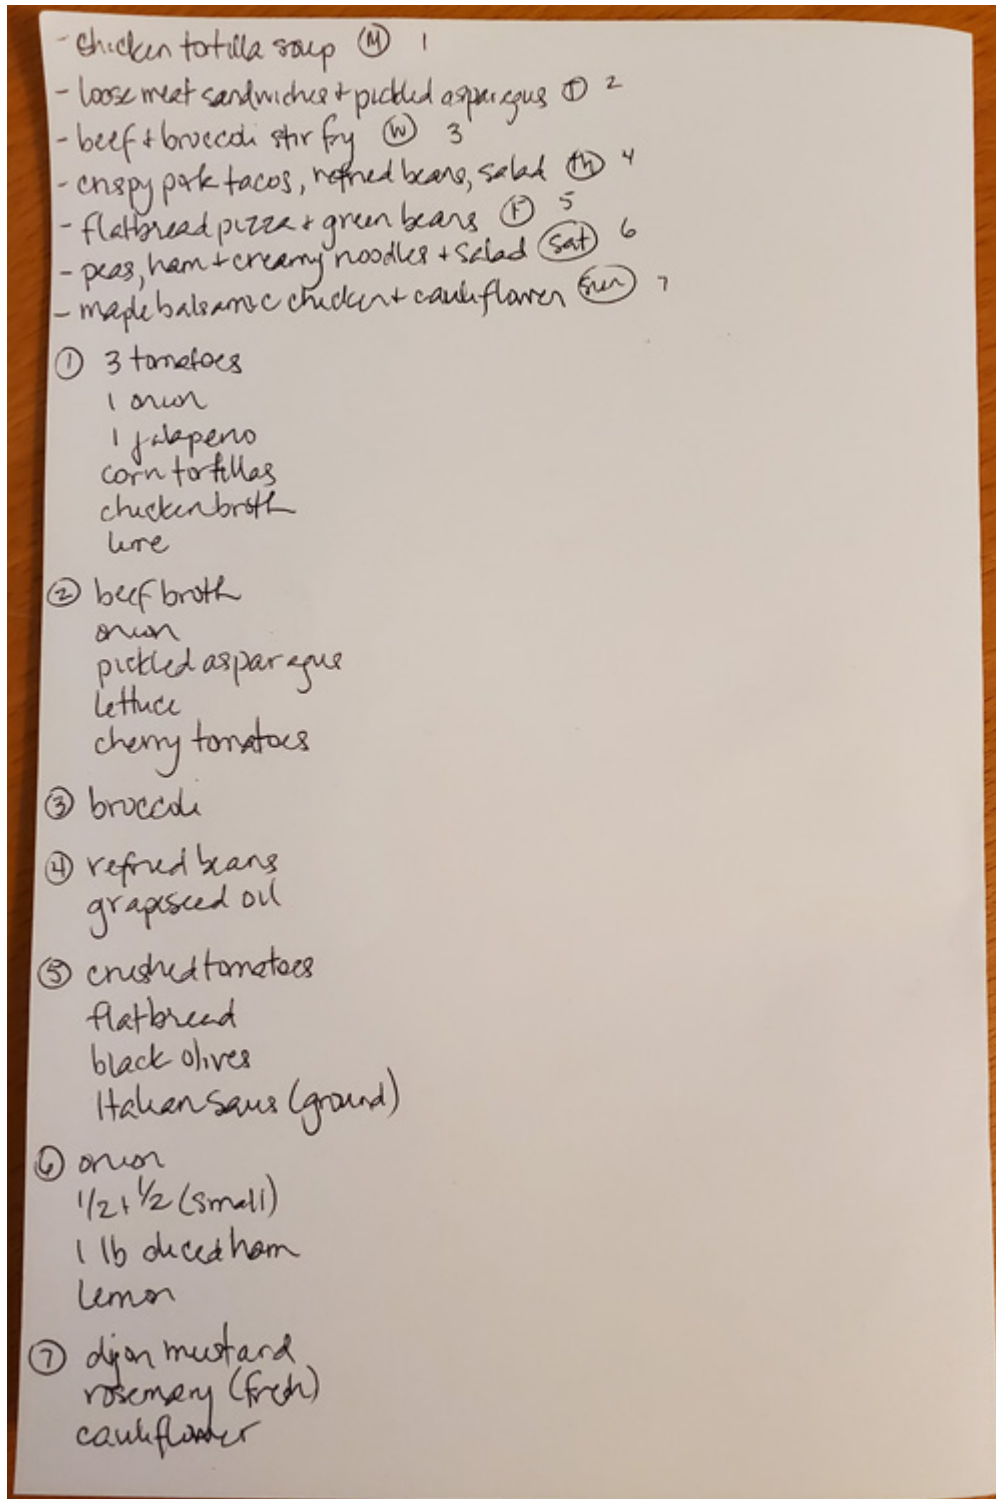 - Chicken tortilla soup (M) 1
- loose meat sandwiches + pickled asparagus (T) 2
- beef + broccoli stir fry (W) 3
- crispy pork tacos, refried beans, salad (Th) 4
- flatbread pizza + green beans (F) 5
- peas, ham + creamy noodles + salad (Sat) 6
- maple balsamic chicken + cauliflower (Sun) 7
(1) 3 tomatoes
1 onion
1 jalapeno
corn tortillas
chicken broth
lime
(2) beef broth
onion
pickled asparagus
lettuce
cherry tomatoes
(3) broccoli
(4) refried beans
grapeseed oil
(5) crushed tomatoes
flatbread
black olives
Italian saus (ground)
(6) onion
1/2 + 1/2 (small)
1 lb diced ham
lemon
(7) dijon mustard
rosemary (fresh)
cauliflower